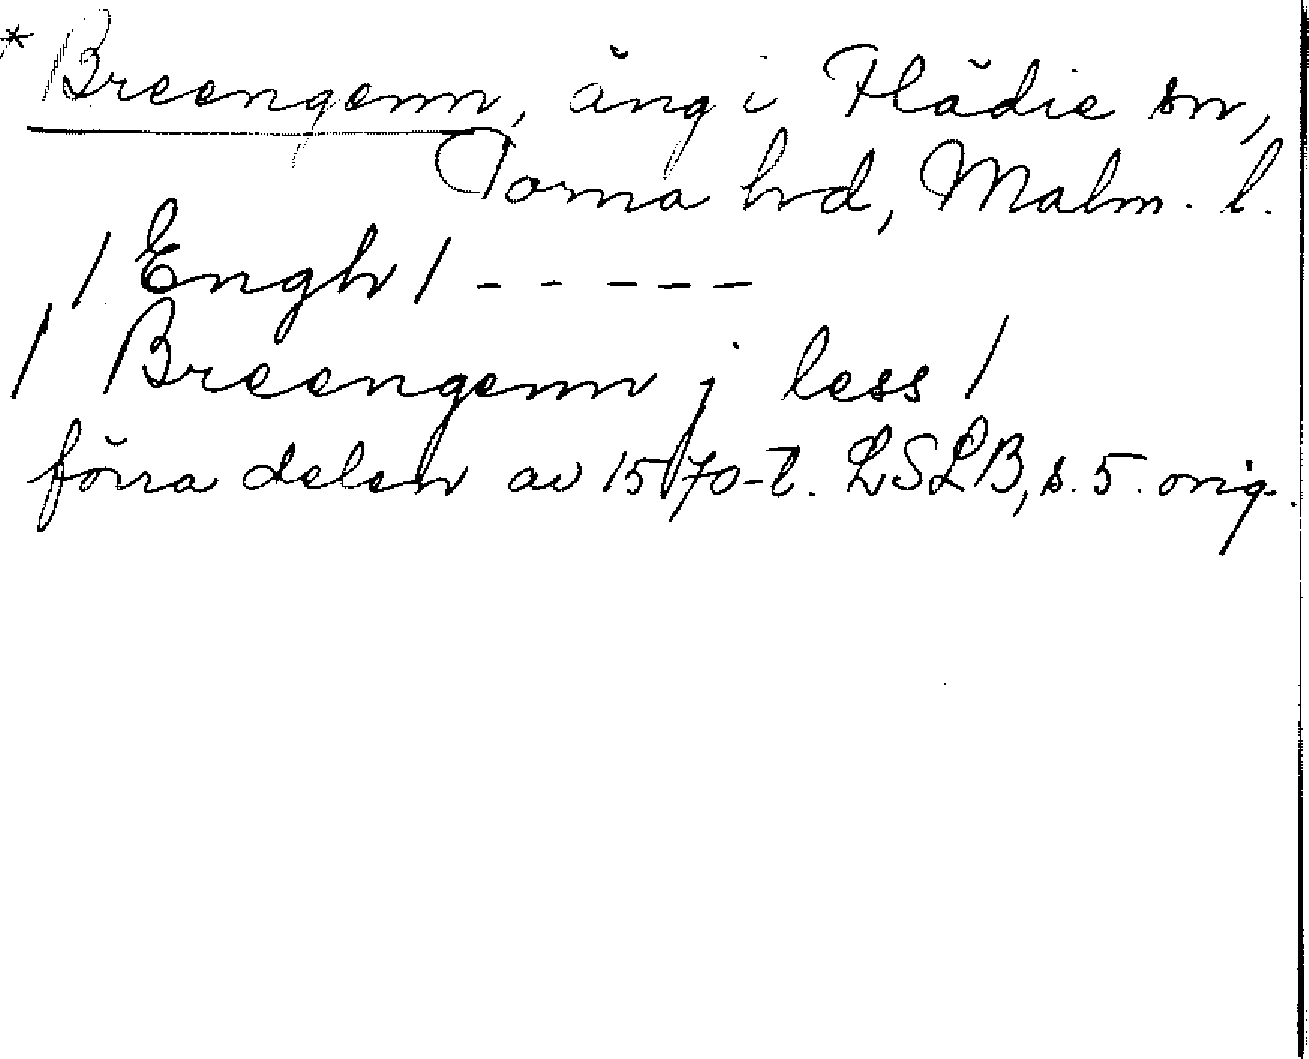 * Breengenn, äng i Flädie sn,
Torna hd, Malm. l.
/ Engh / - - - - - -
/ Breengenn j less /
förra delen av 1570-t. LSLB, s. 5. orig.